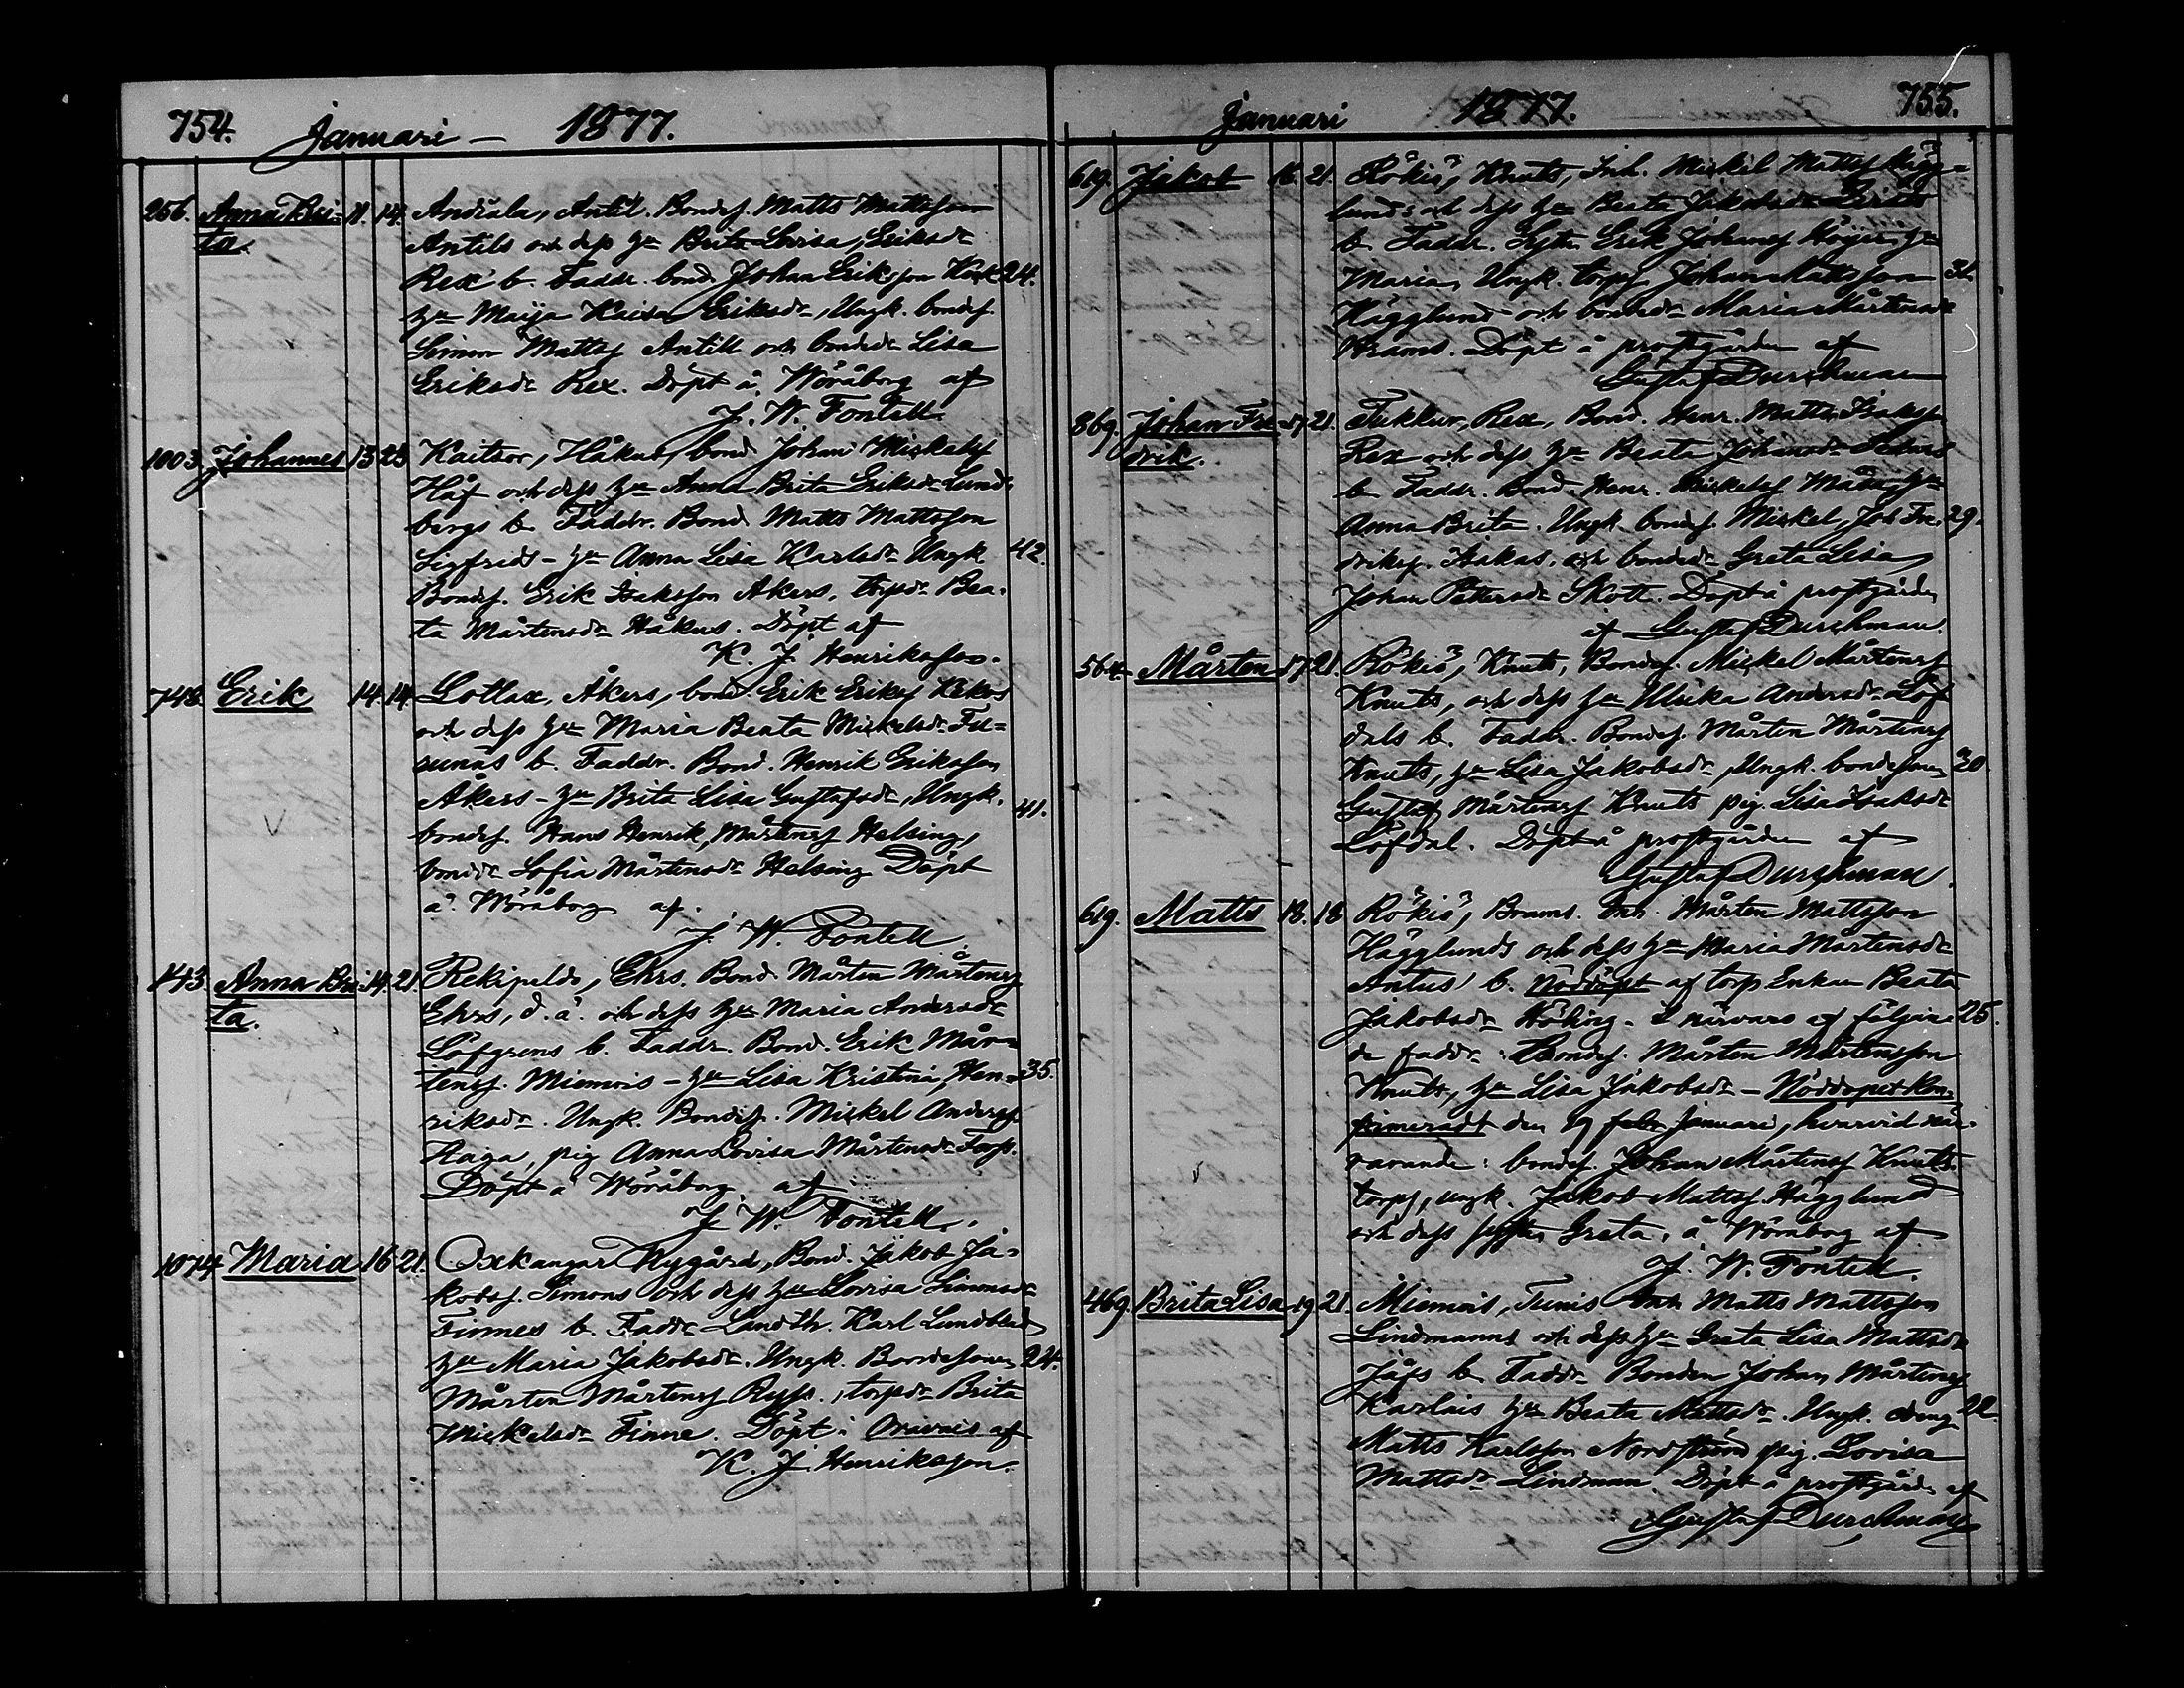 754. Januari — 1877.
256. Anna Bri= 11. 14. Andiala, Antil. Bondes. Matts Mattsson
ta. Antils och dess h. Brita Lovisa Eriksdr
Rex b. Faddr. bond. Johan Eriksson Kock 24.
h. Maija Kaisa Eriksdr, Ungk. bondes.
Simon Mattss Antill och bondedr Lisa
Eriksdr Rex. Döpt å Wöråborg af
J. W. Fontell.
1003. Johannes 13 23 Kaitsor, Håkus, bond Johan Mickelss
Håf och dess h. Anna Brita Eriksdr Lund-
bergs b. Faddr. Bond. Matts Mattsson
Sigfrids – h. Anna Lisa Karlsdr Ungk. 42.
Bondes. Erik Isaksson Akers, torpdr Bea-
ta Mårtensdr Håkus. Döpt af
K. J. Henriksson.
748. Erik 14. 14. Lotlax, Åkers, bond Erik Erikss
och dess h. Maria Beata Mickelsdr
b. Faddr. Bond. Henrik Eriksson
Åkers – h. Brita Lisa Gustafsdr, Ungk. 41.
bondes. Hans Henrik, Mårtenss Helsing,
bonddr Sofia Mårtensdr Helsing Döpt
å Wöråborg af
J. W. Fontell.
443. Anna Bri- 14. 21. Rekipeldo, Ehrs. Bond. Mårten Mårtenss
ta. Ehrs, d. ä. och dess h. Maria Andersdr
Löfgrens b. Faddr. Bond. Erik Mår=
tenss. Miemois – h. Lisa Kristina, Hen- 35.
riksdr. Ungk. Bondes. Mickel Anderss
Haga, pig Anna Lovisa Mårtensdr Torp.
Döpt å Wöråborg af
J. W. Fontell.
1074. Maria 16 21. Oxkangar Nygård, Bond. Jakob Ja-
kobss. Simons och dess h. Lovisa Simonsdr
Finnes b. Faddr Landth. Karl Lundblad
h. Maria Jakobsdr. Ungk. Bondesonen 24.
Mårten Mårtenss Ryss., torpdr Brita
Mickelsdr Finne. Döpt i Oravais af
K. J. Henriksson.
Januari 1877. 755.
619. Jakob 16. 21. Rökiö, Knuts, Inh. Mickel Mattss Hägg=
lunds och dess h. Beata Jakobsdr
b. Faddr. Erik Johanss Höijer h.
Maria, Ungk. torps Johan Mattsson 31.
Hägglund och bondedr Maria Mårtensdr
Brams. Döpt å prostgården af
Gustaf Durchman
869. Johan Fre- 17 21. Tukkur, Rex, Bond. Henr. Matts Isakss
drik. Rex och dess h. Beata Johansdr
b. Faddr. Bond. Henr. Mickelss Måns, h.
Anna Brita. Ungk. bondes. Mickel, Joh. Fre- 29.
drikss. Isakas. och bondedr Greta Lisa,
Johan Petersdr Skott. Döpt å prostgården
af Gustaf Durchman.
564. Mårten 17 21. Rökiö, Knuts, Bondes. Mickel Mårtenss
Knuts, och dess h. Ulrika Andersdr Löf
dals b. Faddr. Bondes. Mårten Mårtenss
Knuts, h. Lisa Jakobsdr, Ungk. bondesonen 30
Gustaf Mårtenss Knuts pig. Lisa Isaksdr
Löfdal. Döpt å prostgården af
Gustaf Durchman.
619. Matts 18. 18 Rökiö, Brams. Inh. Mårten Mattsson
Hägglunds och dess h. Maria Mårtensdr
Antus b. Nöddöpt af torp Enkan Beata
Jakobsdr Höking. I närvaro af följan- 25.
de faddr: Bondes. Mårten Mårtensson
Knuts, h. Lisa Jakobsdr – Nöddopet kon-
firmeradt den 19 febr Januari, hvarvid när-
varande: bondes. Johan Mårtenss Knuts.
torps, ungk. Jakob Mattss Hägglund
och dess syster Greta, å Wöråborg af
J. W. Fontell.
469. Brita Lisa 19 21 Miemois, Tunis Inh Matts Mattsson
Lindmanns och dess h. Greta Lisa Mattsdr
Jåfs b. Faddr Bonden Johan Mårtenss
Karlais h. Beata Mattsdr. Ungk. dreng 22.
Matts Karlsson Nordström pig. Lovisa
Mattsdr Lindman. Döpt å prostgård. af
Gustaf Durchman